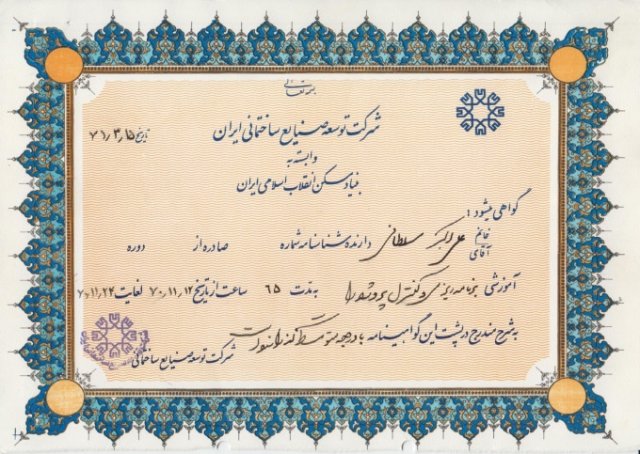 بسمه تعالی
شرکت توسعه صنایع ساختمانی ایران
تاریخ ۷۱٫۳٫۱۵
وابسته به
بنیاد مسکن انقلاب اسلامی ایران
گواهی میشود :
خانم
آقای علی اکبر سلطانی دارنده شناسنامه شماره صادره از دوره
آموزشی برنامه ریزی و کنترل پروژه را به مدت ۶۵ ساعت از تاریخ ۷۰٫۱۱٫۱۲ لغایت ۷۰٫۱۱٫۲۴
به شرح مندرج در پشت این گواهینامه با درجه متوسط گذرانده است
شرکت توسعه صنایع ساختمانی